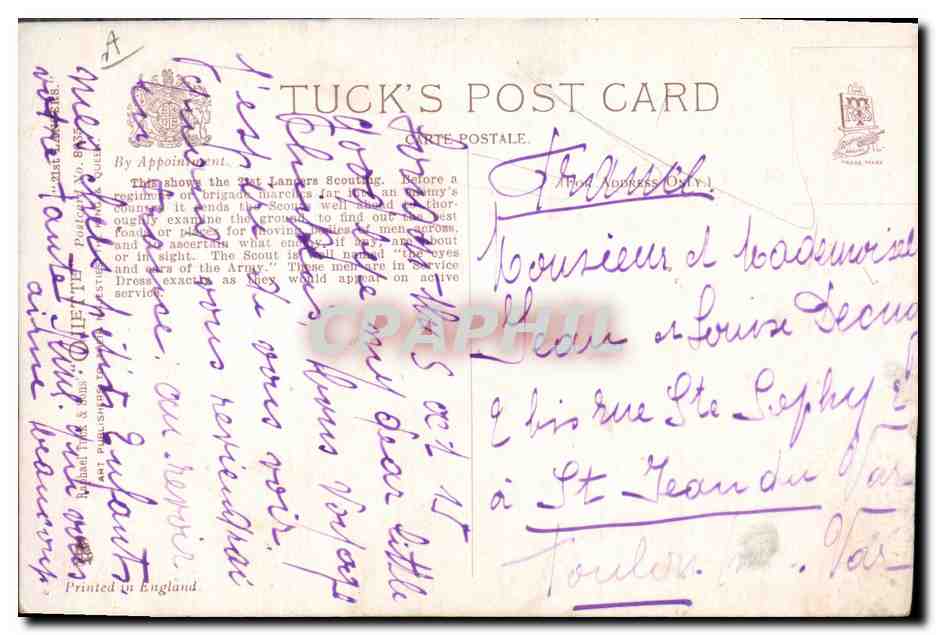 A
TUCK'S POST CARD
CARTE POSTALE.
By Appointment.
(FOR ADDRESS ONLY.)
This shows the 21st Lancers Scouting. Before a
regiment or brigade marches far into an enemy's
country it sends the Scouts well ahead to thor-
oughly examine the ground, to find out the best
roads or places for moving bodies of men across,
and to ascertain what enemy, if any, are about
or in sight. The Scout is well named "the eyes
and ears of the Army." These men are in Service
Dress exactly as they would appear on active
service.
"21st LANCERS."
Raphael Tuck & Sons' "OILETTE" Postcard No.
ART PUBLISHERS TO
QUEEN
Printed in England.
TRADE MARK
France
Monsieur et Mademoiselle
Jean et Louise
2 bis rue Ste Sophy
à St Jean du Var
Toulon Var
15
Good bye my dear little
bons voyage
j'espère de vous voir
quand vous
en France. au revoir
mes chers petits Enfants
votre tante qui vous
aime beaucoup
CPAPHIL